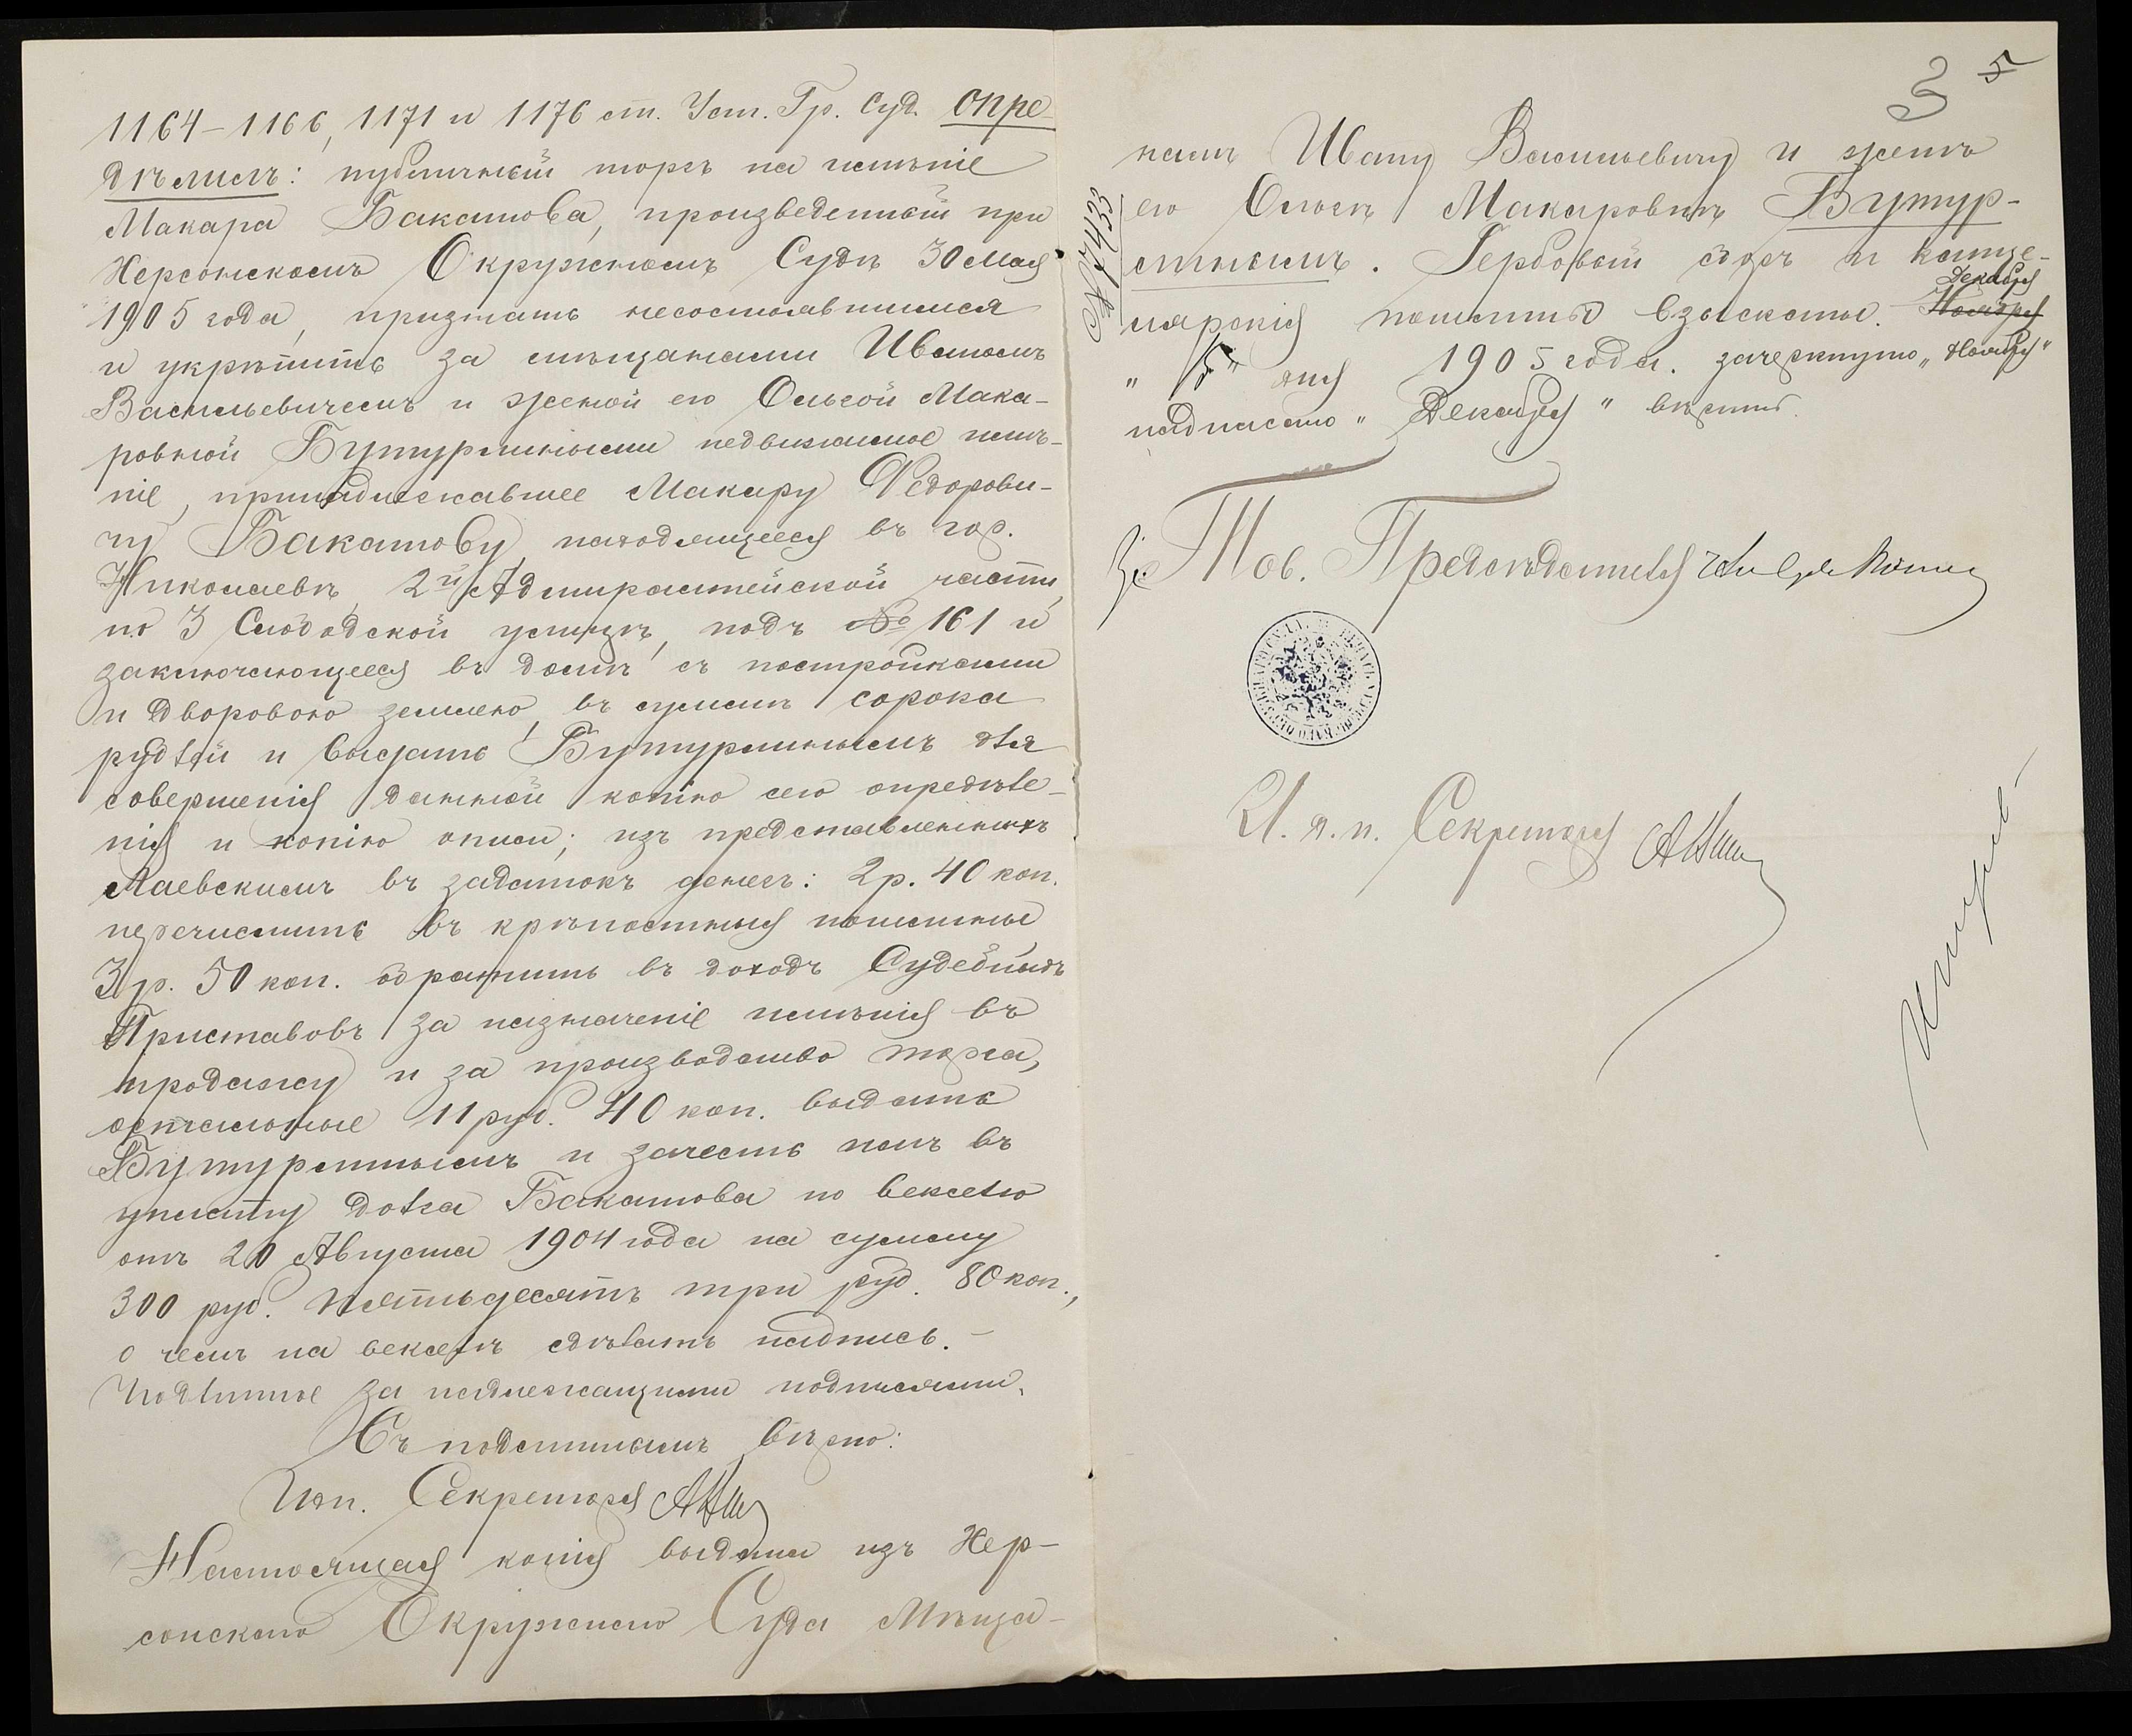 1164–1166, 1171 и 1176 ст. Уст. Гр. Суд. опре-
дѣлилъ: публичный торгъ на имѣніе
Макара Бакатова, произведенный при
Херсонскомъ Окружномъ Судѣ 30 Мая
1905 года, признать несостоявшимся
и укрѣпить за мѣщанами Иваномъ
Васильевичемъ и женой его Ольгой Мака-
ровной Бутурлиными недвижимое имѣ-
ніе, принадлежавшее Макару Федорови-
чу Бакатову, находящееся въ гор.
Николаевѣ, 2й Адмиралтейской части,
по 3 Слободской улицѣ, подъ № 161 и
заключающееся въ домѣ съ постройками
и дворовою землею, въ суммѣ сорока
рублей и выдать Бутурлинымъ для
совершенія данной копію сего опредѣле-
нія и копію описи; изъ представленныхъ
Маевскимъ въ задатокъ денегъ: 2 р. 40 коп.
перечислить въ крѣпостныя пошлины
3 р. 50 коп. обратить въ доходъ Судебныхъ
Приставовъ за назначеніе имѣнія въ
продажу и за производство торга,
остальные 11 руб. 40 коп. выдать
Бутурлинымъ и зачесть имъ въ
уплату долга Бакатова по векселю
отъ 20 Августа 1904 года на сумму
300 руб. пятьдесятъ три руб. 80 коп.,
о чемъ на векселѣ сдѣлать надпись.–
Подлинное за надлежащими подписями.
Съ подлиннымъ вѣрно:
Секретаря
Настоящая копія выдана изъ Хер-
сонскаго Окружнаго Суда Мѣща-
3 5
намъ Ивану Васильевичу и женѣ
его Ольгѣ Макаровнѣ Бутур-
№ 17433
линымъ. Гербовый сборъ и канце-
Декабря
лярскія пошлины взысканы. Ноября
" 5 " дня 1905 года. зачеркнуто „Ноября"
надписано „Декабря" вѣрить.
За Тов. Предсѣдателя
И. д. п. Секретаря